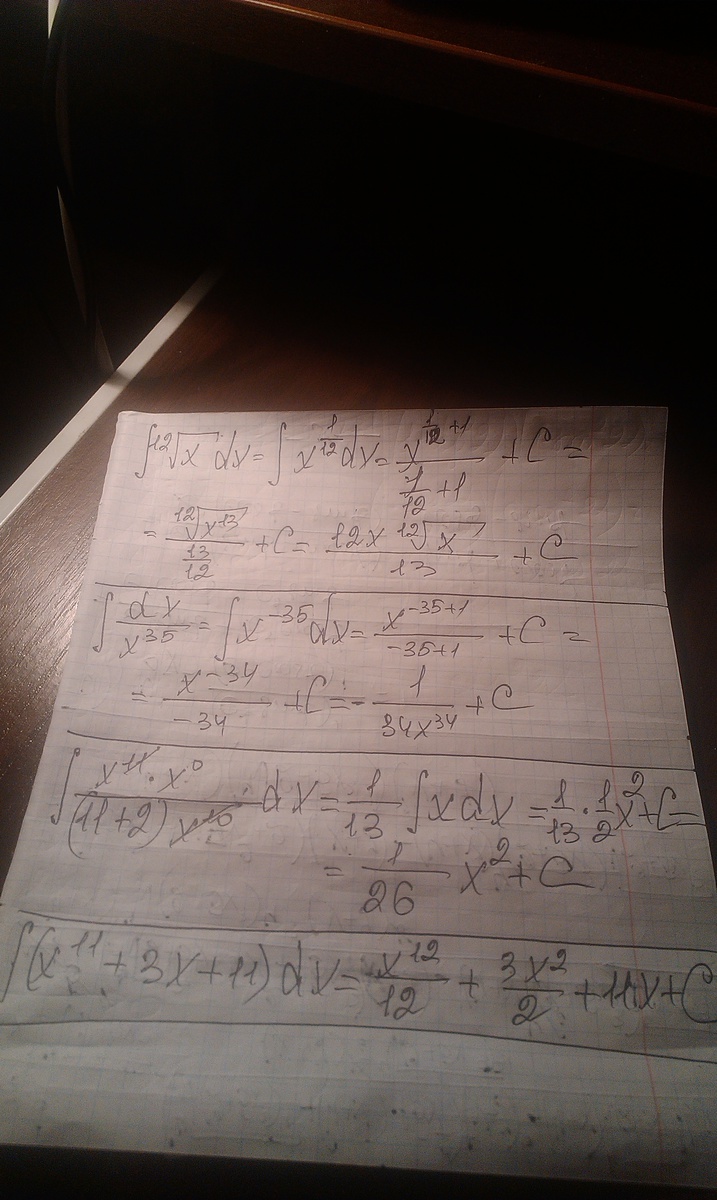 ∫ ¹²√x dx = ∫ x^(1/12) dx = x^(1/12 + 1) / (1/12 + 1) + C =
= ¹²√(x^13) / (13/12) + C = 12x ¹²√x / 13 + C
∫ dx / x^35 = ∫ x^(-35) dx = x^(-35+1) / (-35+1) + C =
= x^(-34) / (-34) + C = - 1 / (34x^34) + C
∫ (x^11 · x^0) / ((11+2) x^10) dx = 1/13 ∫ x dx = 1/13 · 1/2 x^2 + C =
= 1/26 x^2 + C
∫ (x^11 + 3x + 11) dx = x^12 / 12 + 3x^2 / 2 + 11x + C